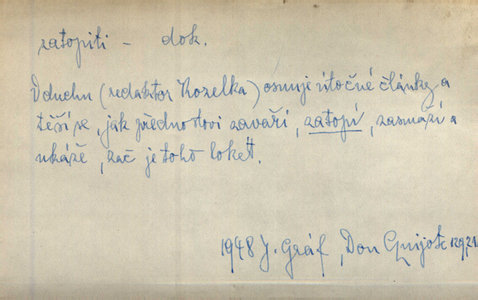 zatopiti – dok.
V duchu (redaktor Kozelka) osnuje útočné články a
těší se, jak přednostovi zavaří, zatopí, zasmaží a
ukáže, zač je toho loket.
1948 J. Gráf, Don Quijote